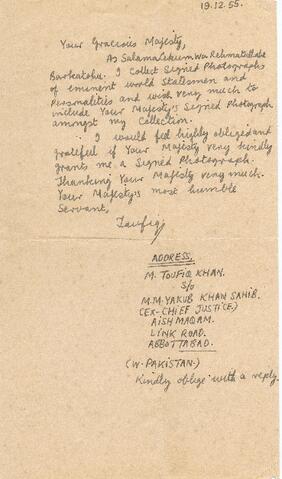 19.12.55.
Your Gracious Majesty,
As Salama Lekum Wa Rehmatullahe
Barkatohu. I collect Signed Photographs
of eminent world Statesmen and
Personalities and wish very much to
include Your Majesty's Signed Photograph
amongst my Collection.
I would feel highly obliged and
grateful if Your Majesty very kindly
grants me a Signed Photograph.
Thanking Your Majesty very much.
Your Majesty's most humble
Servant,
Toufiq
ADDRESS.
M. TOUFIQ KHAN.
S/O
M.M. YAKUB KHAN SAHIB.
(EX-CHIEF JUSTICE)
AISH MAQAM.
LINK ROAD.
ABBOTTABAD.
(W. PAKISTAN.)
Kindly oblige with a reply.